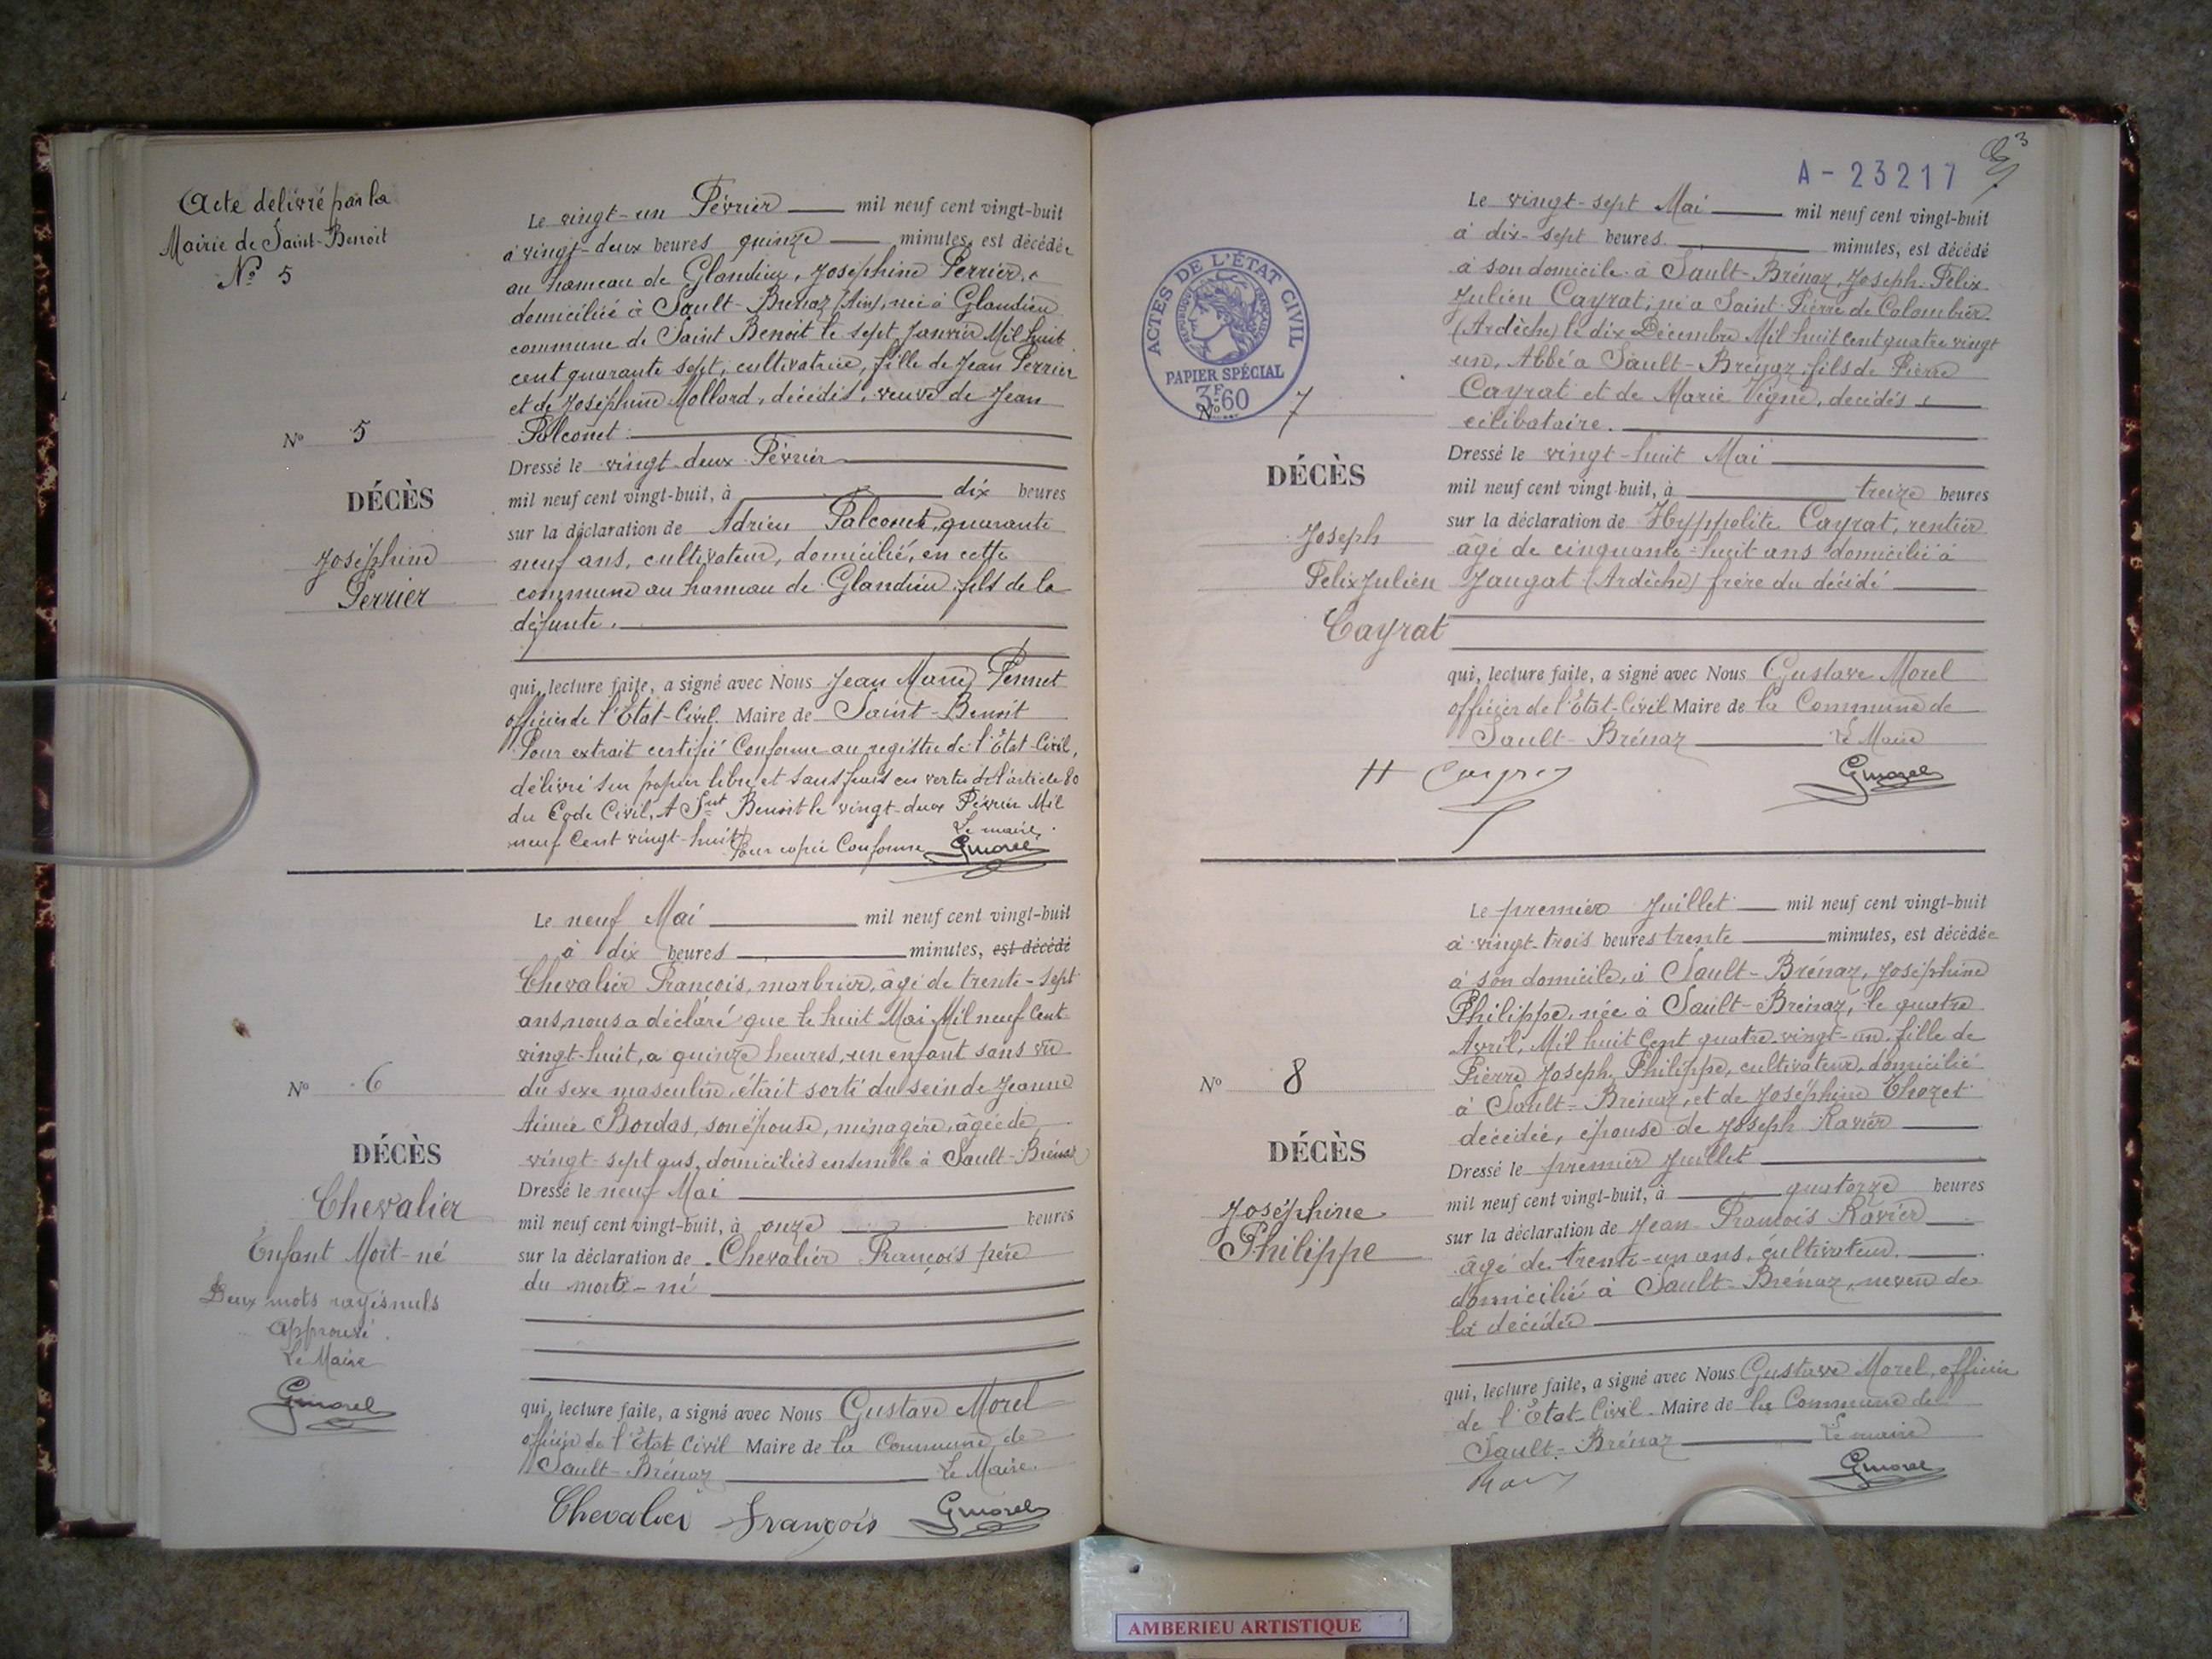 Acte délivré par la
Mairie de Saint-Benoit
N° 5
Le vingt-un Février mil neuf cent vingt-huit
à vingt-deux heures quinze minutes, est décédée
au hameau de Glandieu, Joséphine Perrier,
domiciliée à Sault-Brénaz (Ain), née à Glandieu
commune de Saint Benoit le sept Janvier Mil huit
cent quarante sept, cultivatrice, fille de Jean Perrier
et de Joséphine Mollard, décédés, veuve de Jean
Falconet.
N° 5
DÉCÈS
Joséphine
Perrier
Dressé le vingt-deux Février
mil neuf cent vingt-huit, à dix heures
sur la déclaration de Adrien Falconet, quarante
neuf ans, cultivateur, domicilié, en cette
commune au hameau de Glandieu, fils de la
défunte.
qui, lecture faite, a signé avec Nous Jean Marie Pennet
officier de l'État-Civil. Maire de Saint-Benoit
Pour extrait certifié Conforme au registre de l'État-Civil,
délivré sur papier libre et sans frais en vertu de l'article 80
du Code Civil, A Snt Benoit le vingt-deux Février Mil
neuf Cent vingt-huit
Pour copie Conforme Le maire,
Gmorel
Le neuf Mai mil neuf cent vingt-huit
à dix heures minutes, est décédé
Chevalier François, marbrier, âgé de trente-sept
ans, nous a déclaré que le huit Mai Mil neuf Cent
vingt-huit, à quinze heures, un enfant sans vie
du sexe masculin, était sorti du sein de Jeanne
Aimée Bordas, son épouse, ménagère, âgée de
vingt-sept ans, domiciliés ensemble à Sault-Brénaz
N° 6
DÉCÈS
Chevalier
Enfant Mort-né
Deux mots rayés nuls
approuvé
Le Maire
Gmorel
Dressé le neuf Mai
mil neuf cent vingt-huit, à onze heures
sur la déclaration de Chevalier François père
du mort-né
qui, lecture faite, a signé avec Nous Gustave Morel
officier de l'État Civil Maire de la Commune de
Sault-Brénaz Le Maire.
Chevalier François Gmorel
3
A-23217
ACTES DE L'ÉTAT CIVIL
RÉPUBLIQUE FRANÇAISE
PAPIER SPÉCIAL
3F60
Le vingt-sept Mai mil neuf cent vingt-huit
à dix-sept heures minutes, est décédé
à son domicile à Sault-Brénaz, Joseph Felix
Julien Cayrat, né à Saint-Pierre de Colombier
(Ardèche) le dix Décembre Mil huit cent quatre vingt
un, Abbé à Sault-Brénaz, fils de Pierre
Cayrat et de Marie Vigne, décédés
célibataire.
N° 7
DÉCÈS
Joseph
Felix Julien
Cayrat
Dressé le vingt-huit Mai
mil neuf cent vingt-huit, à treize heures
sur la déclaration de Hyppolite Cayrat, rentier
âgé de cinquante-huit ans domicilié à
Jaugat (Ardèche) frère du décédé
qui, lecture faite, a signé avec Nous Gustave Morel
officier de l'État-Civil Maire de la Commune de
Sault-Brénaz Le Maire
H Cayrat Gmorel
Le premier Juillet mil neuf cent vingt-huit
à vingt-trois heures trente minutes, est décédée
à son domicile, à Sault-Brénaz, Joséphine
Philippe, née à Sault-Brénaz, le quatre
Avril, Mil huit Cent quatre-vingt-un, fille de
Pierre Joseph Philippe, cultivateur, domicilié
à Sault-Brénaz, et de Joséphine Chozet
décédée, épouse de Joseph Ravier
N° 8
DÉCÈS
Joséphine
Philippe
Dressé le premier Juillet
mil neuf cent vingt-huit, à quatorze heures
sur la déclaration de Jean-François Ravier
âgé de trente-un ans, cultivateur.
domicilié à Sault-Brénaz, neveu de
la décédée
qui, lecture faite, a signé avec Nous Gustave Morel, officier
de l'État-Civil. Maire de la Commune de
Sault-Brénaz Le maire
Gmorel
AMBERIEU ARTISTIQUE